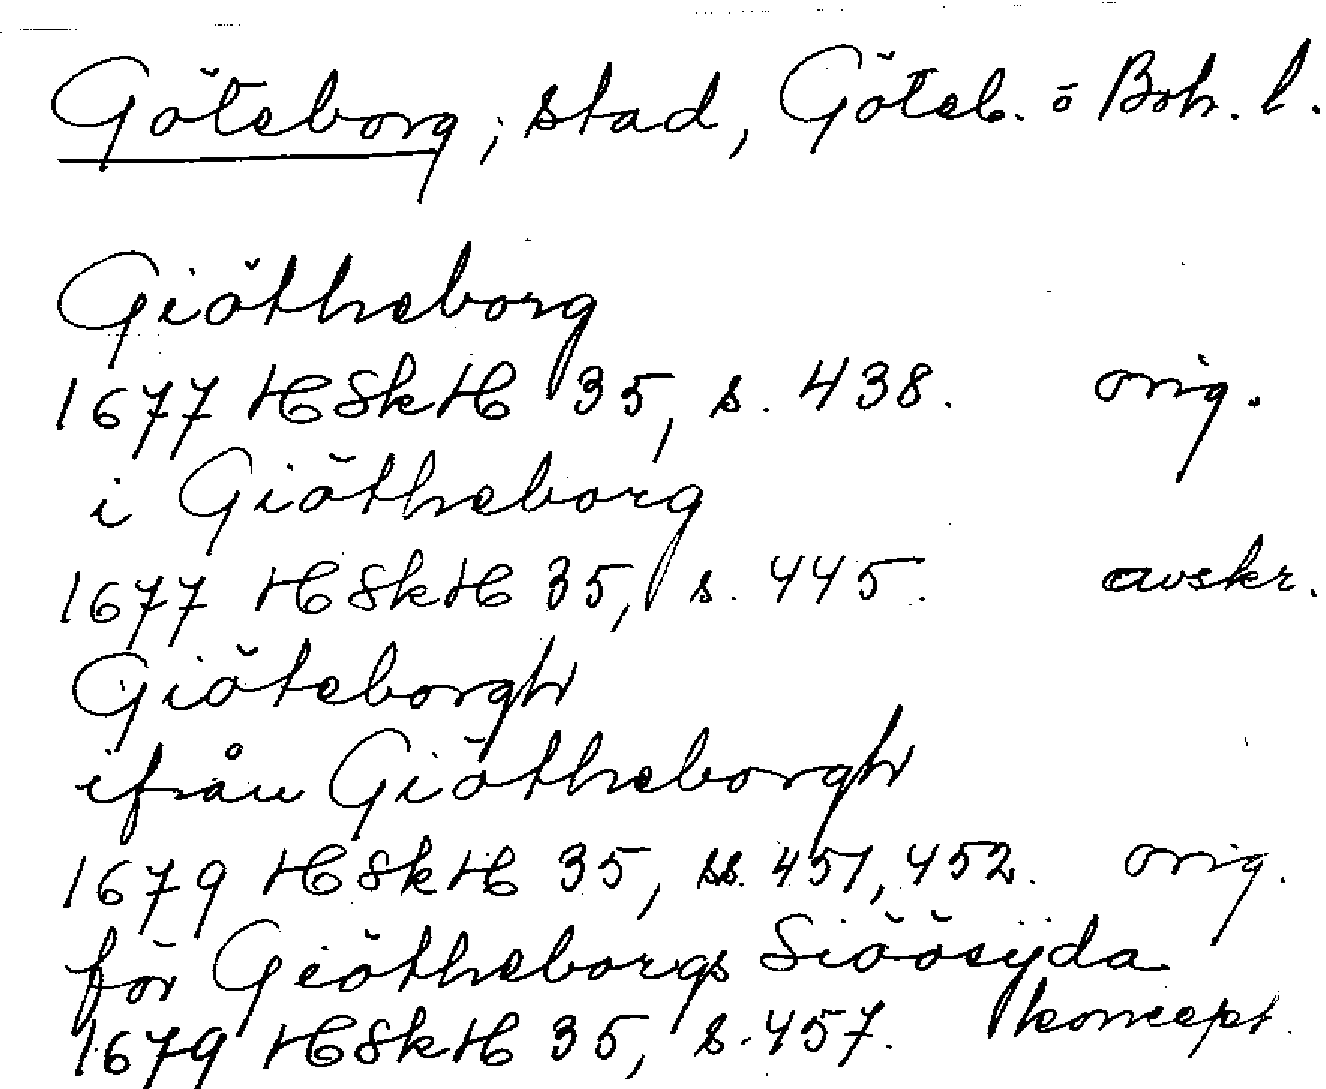 Göteborg; stad, Göteb. o Boh. l.
Giötheborg
1677 HSkH 35, s. 438. orig.
i Giötheborg
1677 HSkH 35, s. 445. avskr.
Giöteborgh
ifrån Giötheborgh
1679 HSkH 35, ss. 451, 452. orig.
för Giötheborgs Siöösÿda
1679 HSkH 35, s. 457. koncept.